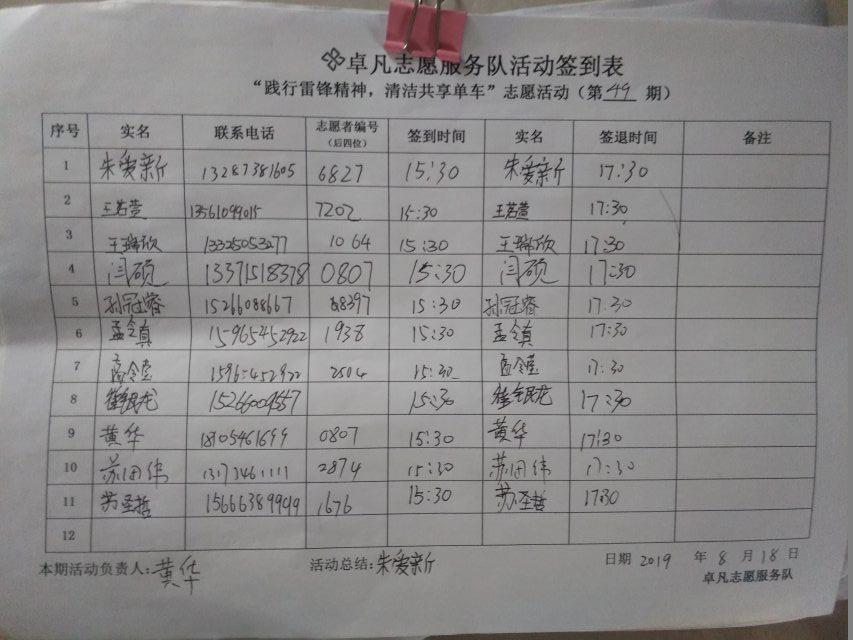 卓凡志愿服务队活动签到表
“践行雷锋精神，清洁共享单车”志愿活动（第 49 期）
序号 实名 联系电话 志愿者编号（后四位） 签到时间 实名 签退时间 备注
1 朱爱新 13287381605 6827 15:30 朱爱新 17:30
2 王若萱 13561099015 7202 15:30 王若萱 17:30
3 王瑞欣 13325053277 1064 15:30 王瑞欣 17:30
4 闫硕 13371518378 0807 15:30 闫硕 17:30
5 孙冠睿 15266088667 8397 15:30 孙冠睿 17:30
6 孟令真 15965452922 1938 15:30 孟令真 17:30
7 2504 15:30 17:30
8 15:30 17:30
9 黄华 18105461699 0807 15:30 黄华 17:30
10 苏田伟 13173461111 2874 15:30 苏田伟 17:30
11 苏圣哲 15666389999 1676 15:30 苏圣哲 17:30
12
本期活动负责人：黄华 活动总结：朱爱新 日期 2019 年 8 月 18 日
卓凡志愿服务队